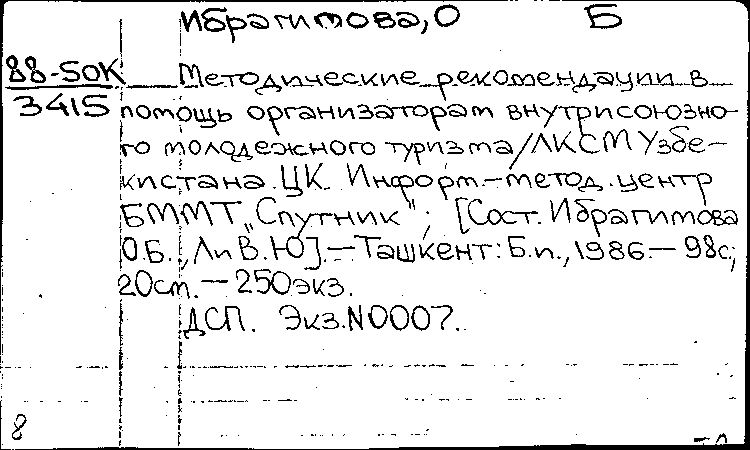 Ибрагимова, О Б
88-50К Методические рекомендации в
3415 помощь организаторам внутрисоюзно-
го молодежного туризма/ЛКСМ Узбе-
кистана. ЦК. Информ.-метод. центр
БММТ „Спутник"; [Сост. Ибрагимова
О.Б., Ли В.Ю].—Ташкент: Б.и., 1986.— 98с.;
20см.— 250экз.
ДСП. Экз.N0007.
8